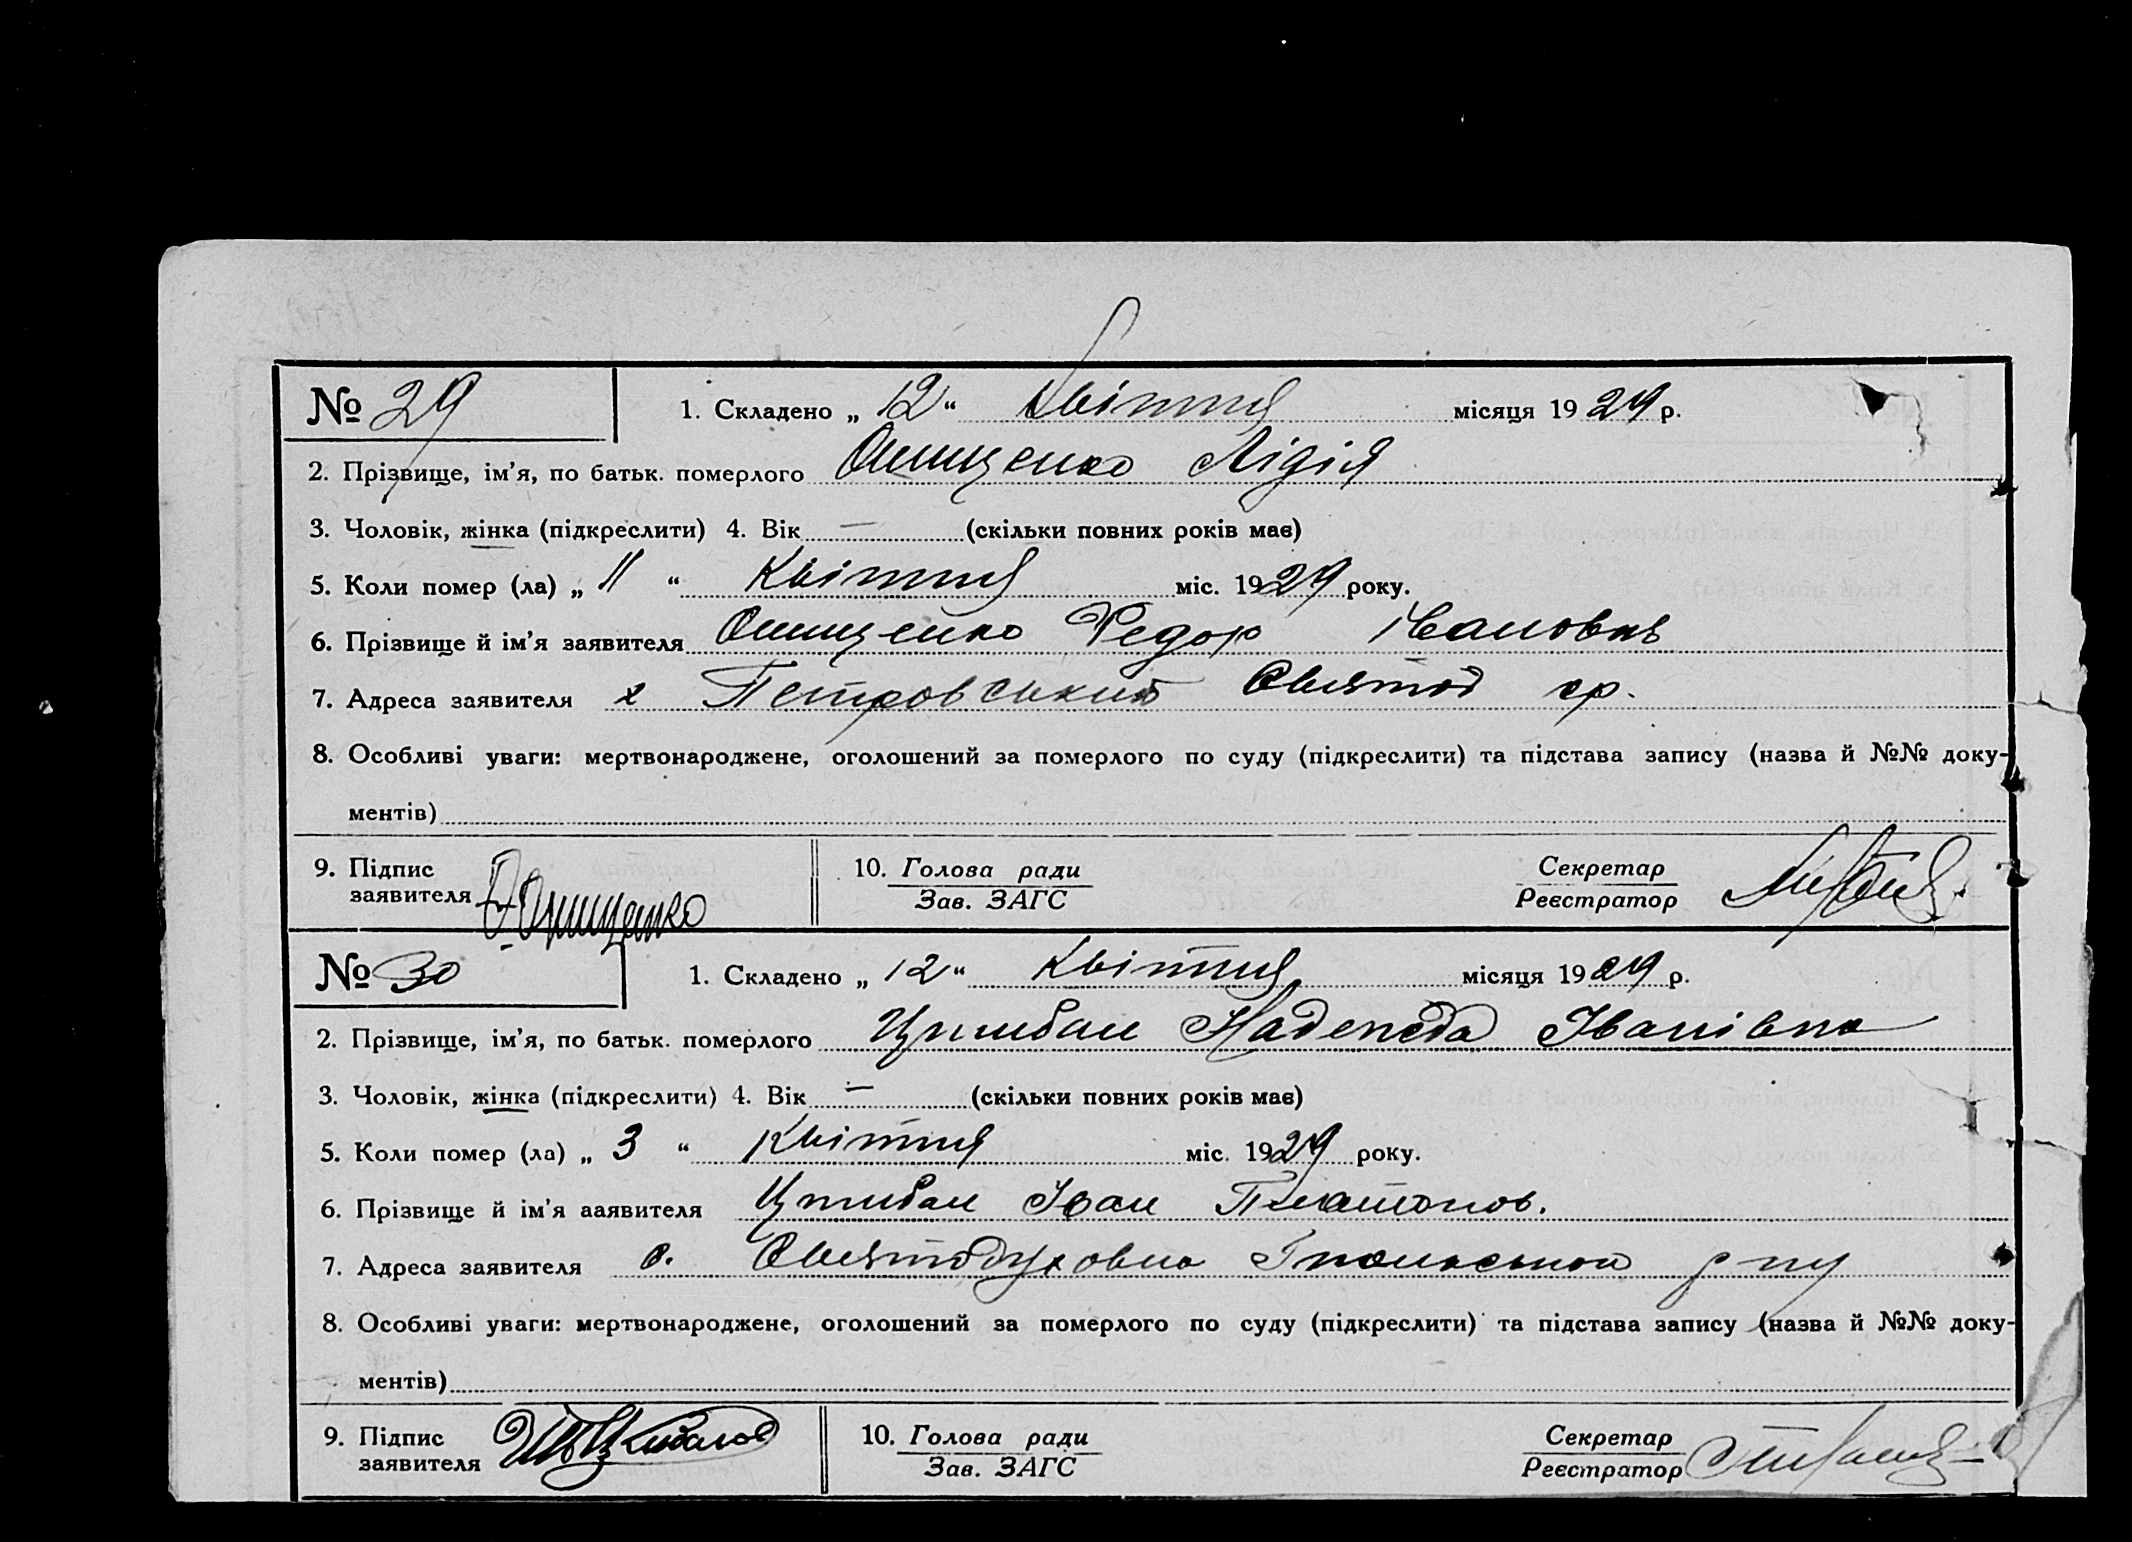 № 29 1. Складено „ 12 “ Квітня місяця 1929 р.
2. Прізвище, ім’я, по батьк. померлого Онищенко Лідія
3. Чоловік, жінка (підкреслити) 4. Вік — (скільки повних років має)
5. Коли помер (ла) „ 11 “ Квітня міс. 1929 року.
6. Прізвище й ім’я заявителя Онищенко Федор Іванович
7. Адреса заявителя х Петровський Святод ср.
8. Особливі уваги: мертвонароджене, оголошений за померлого по суду (підкреслити) та підстава запису (назва й №№ доку-
ментів)
9. Підпис заявителя Ф. Онищенко 10. Голова ради Зав. ЗАГС Секретар Реєстратор
№ 30 1. Складено „ 12 “ Квітня місяця 1929 р.
2. Прізвище, ім’я, по батьк. померлого Цимбал Надежда Іванівна
3. Чоловік, жінка (підкреслити) 4. Вік — (скільки повних років має)
5. Коли помер (ла) „ 3 “ Квітня міс. 1929 року.
6. Прізвище й ім’я заявителя Цимбал Іван Платонов.
7. Адреса заявителя с. Святодуховка р-ну
8. Особливі уваги: мертвонароджене, оголошений за померлого по суду (підкреслити) та підстава запису (назва й №№ доку-
ментів)
9. Підпис заявителя 10. Голова ради Зав. ЗАГС Секретар Реєстратор